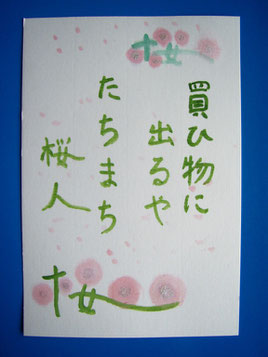 桜
買ひ物に
出るや
たちまち
桜人
桜